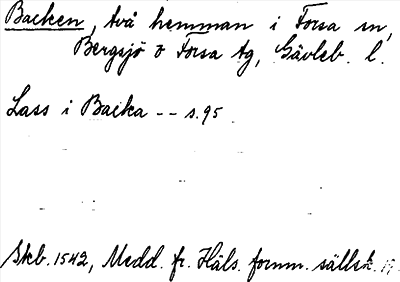 Backen, två hemman i Forsa sn,
Bergsjö o Forsa tg, Gävleb. l.
Lass i Backa -- s. 95.
Skb. 1542, Medd. fr. Häls. fornm. sällsk.